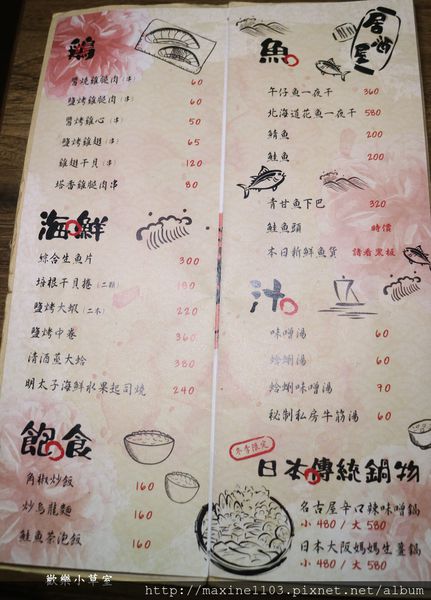 鶏
醬燒雞腿肉(串) 60
鹽烤雞腿肉(串) 60
醬烤雞心(串) 50
鹽烤雞翅(串) 65
雞翅干貝(串) 120
塔香雞腿肉串 80
海鮮
綜合生魚片 300
培根干貝捲(二顆) 180
鹽烤大蝦(二本) 220
鹽烤中卷 360
清酒蒸大蛤 380
明太子海鮮水果起司燒 240
飽食
角椒炒飯 160
炒烏龍麵 160
鮭魚茶泡飯 160
居酒屋
魚
午仔魚一夜干 360
北海道花魚一夜干 580
鯖魚 200
鮭魚 200
青甘魚下巴 320
鮭魚頭 時價
本日新鮮魚貨 請看黑板
汁
味噌湯 60
蛤蜊湯 60
蛤蜊味噌湯 70
秘制私房牛筋湯 60
冬季限定
日本傳統鍋物
名古屋辛口辣味噌鍋
小 480 / 大 580
日本大阪媽媽生薑鍋
小 480 / 大 580
歡樂小草室
http://maxine1103.pixnet.net/album